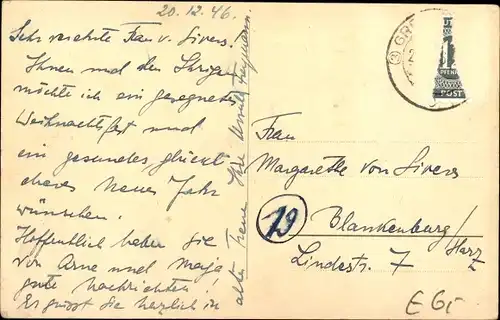 20.12.46.
Sehr verehrte Frau v. Sivers!
Ihnen und den Ihrigen
möchte ich ein gesegnetes
Weihnachtsfest und
ein gesundes, glückl
iches neues Jahr
wünschen.
Hoffentlich haben Sie
von Arne und Maja
gute Nachrichten!
Es grüsst Sie herzlich in
alter Treue Ihre
GR
PFENN
POST
Frau
Margarethe von Sivers
19
Blankenburg/
Harz
Lindestr. 7
E 6,-